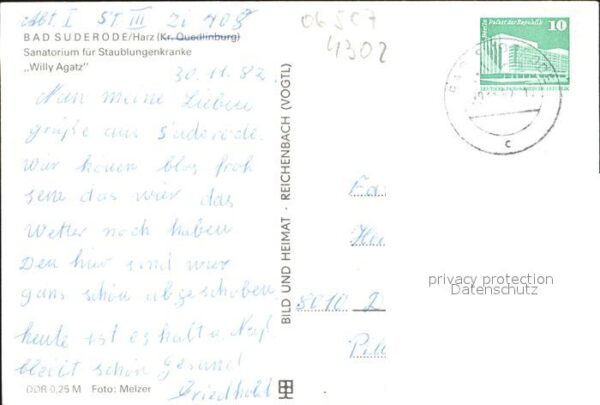 Abt. I ST. III Zi 408
BAD SUDERODE/Harz (Kr. Quedlinburg)
Sanatorium für Staublungenkranke
„Willy Agatz"
30.11.82.
Nun meine Lieben
grüße aus Suderode.
Wir könen blos froh
sein das wir das
Wetter noch haben
Den hir sind wir
gans schön abgeschoben.
heute ist es halt u. Naß
bleibt schön Gesund
DDR 0,25 M Foto: Melzer
BILD UND HEIMAT · REICHENBACH (VOGTL)
06507
4302
Berlin Palast der Republik 10
c
Fa
8010 D
privacy protection
Datenschutz